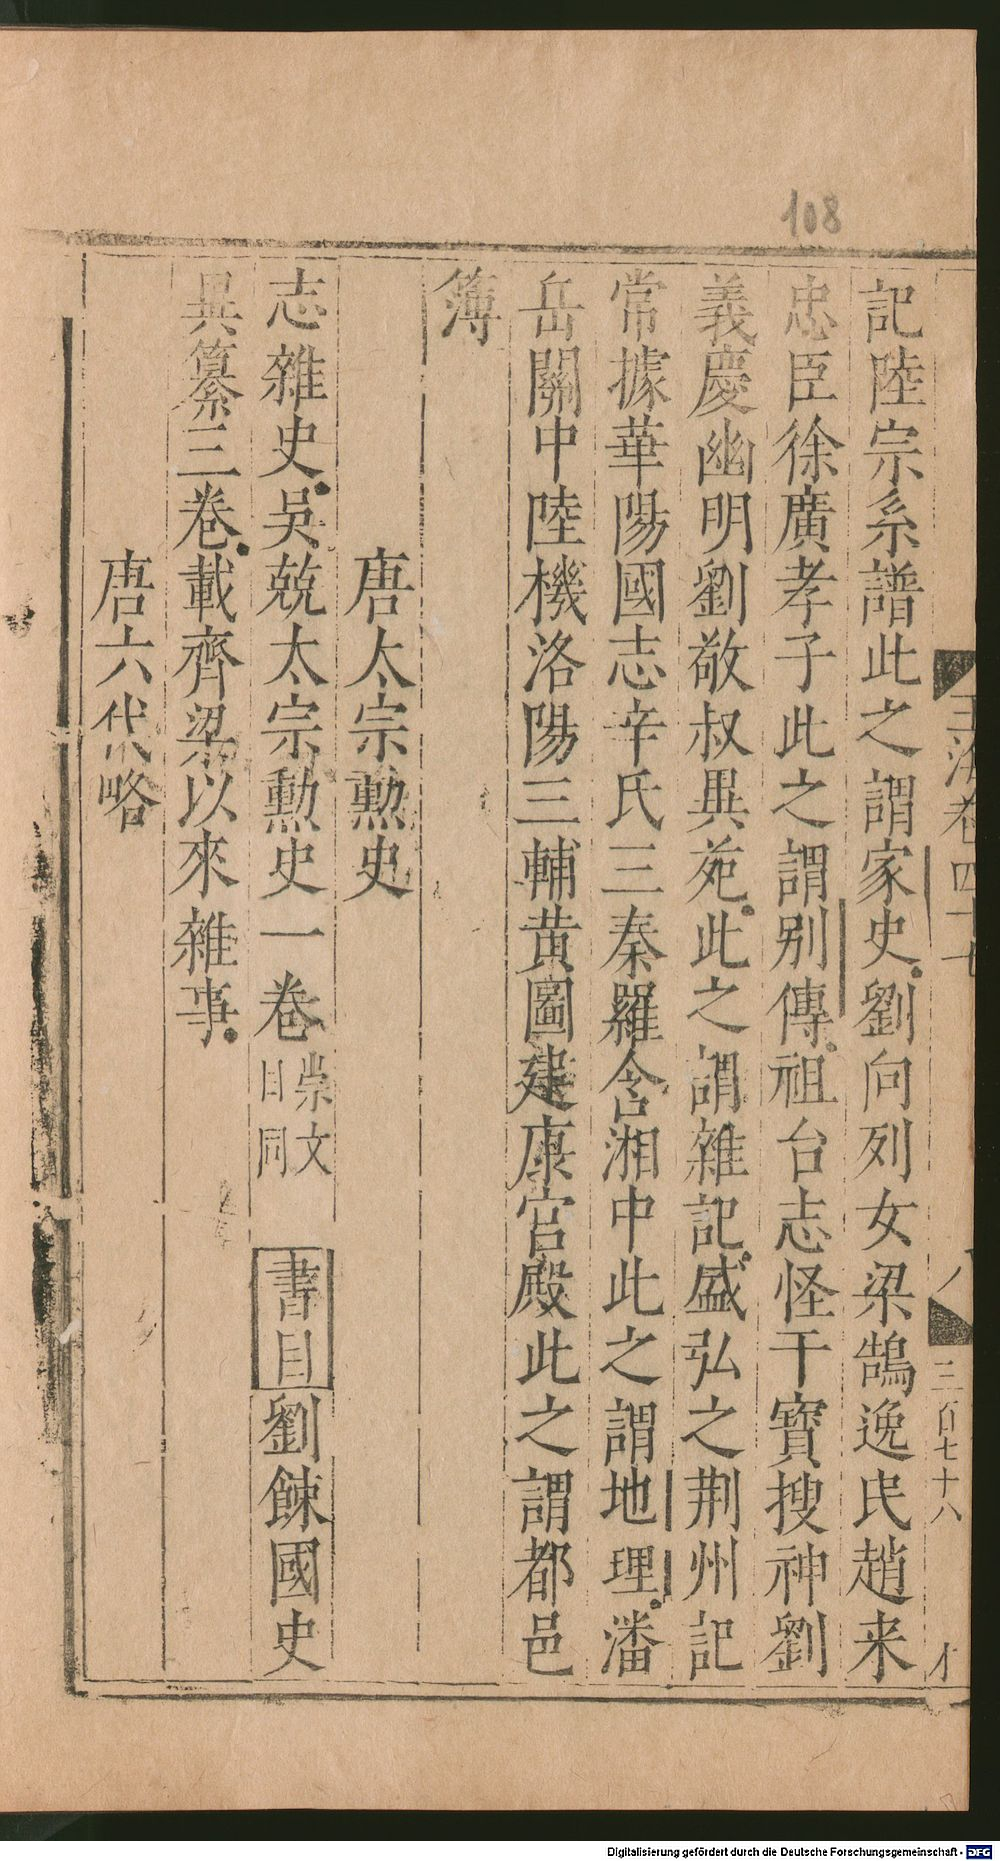 108
玉海卷四十七
八
三百七十八
記陸宗系譜此之謂家史劉向列女梁鵠逸民趙来
忠臣徐廣孝子此之謂别傳祖台志怪干寳搜神劉
義慶幽明劉敬叔異苑此之謂雜記盛弘之荆州記
常據華陽國志辛氏三秦羅含湘中此之謂地理潘
岳關中陸機洛陽三輔黄圖建康宫殿此之謂都邑
簿
唐太宗勲史
志雜史吳兢太宗勲史一卷崇文目同 書目劉餗國史
異纂三卷載齊梁以來雜事
唐六代略
Digitalisierung gefördert durch die Deutsche Forschungsgemeinschaft - DFG